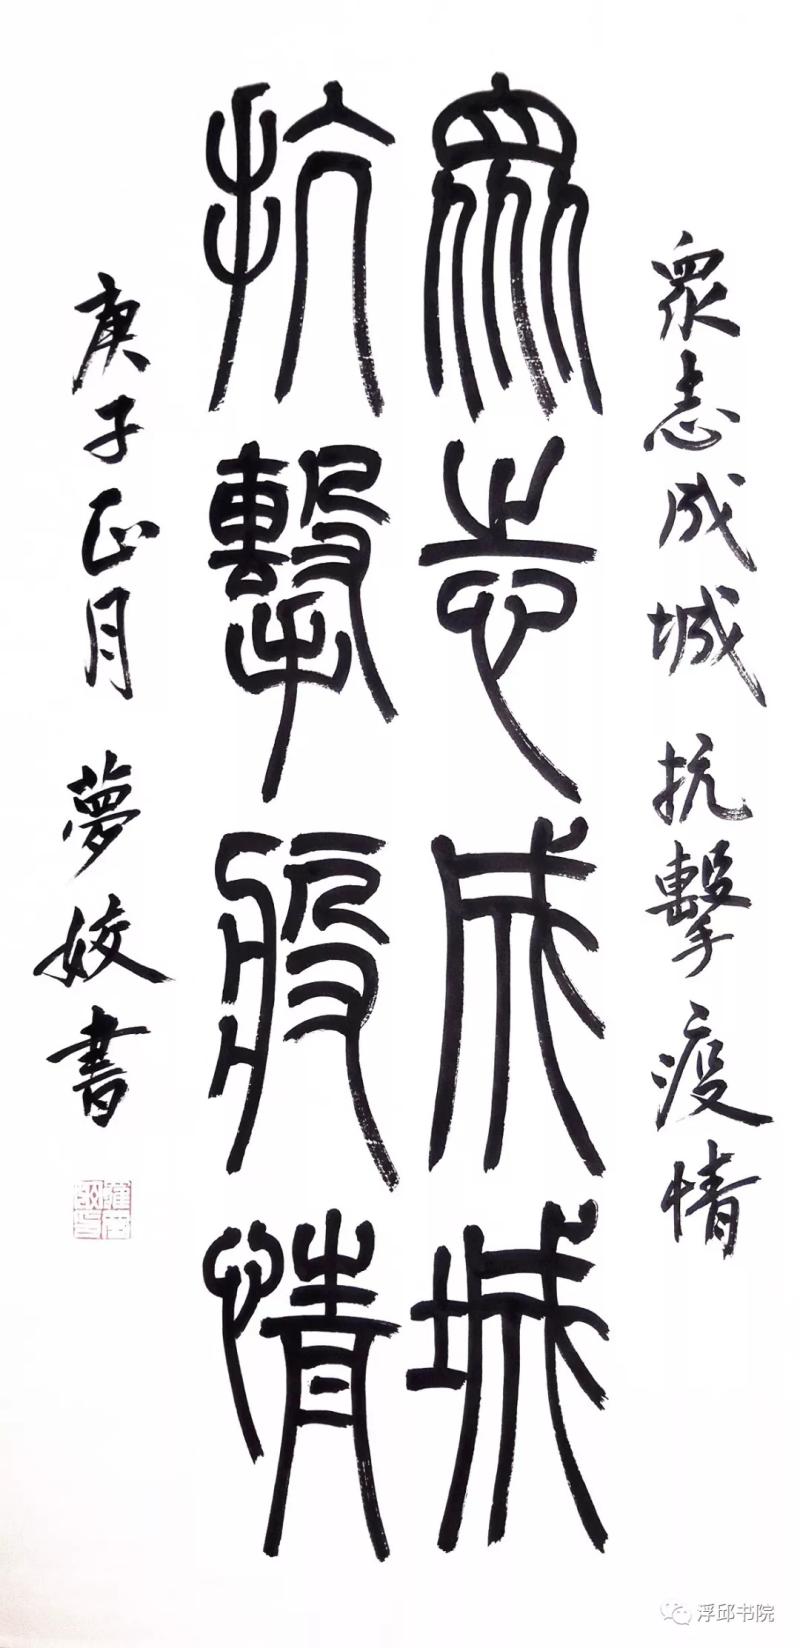 眾志成城抗擊疫情
眾志成城
抗擊疫情
庚子正月夢姣書
浮邱书院